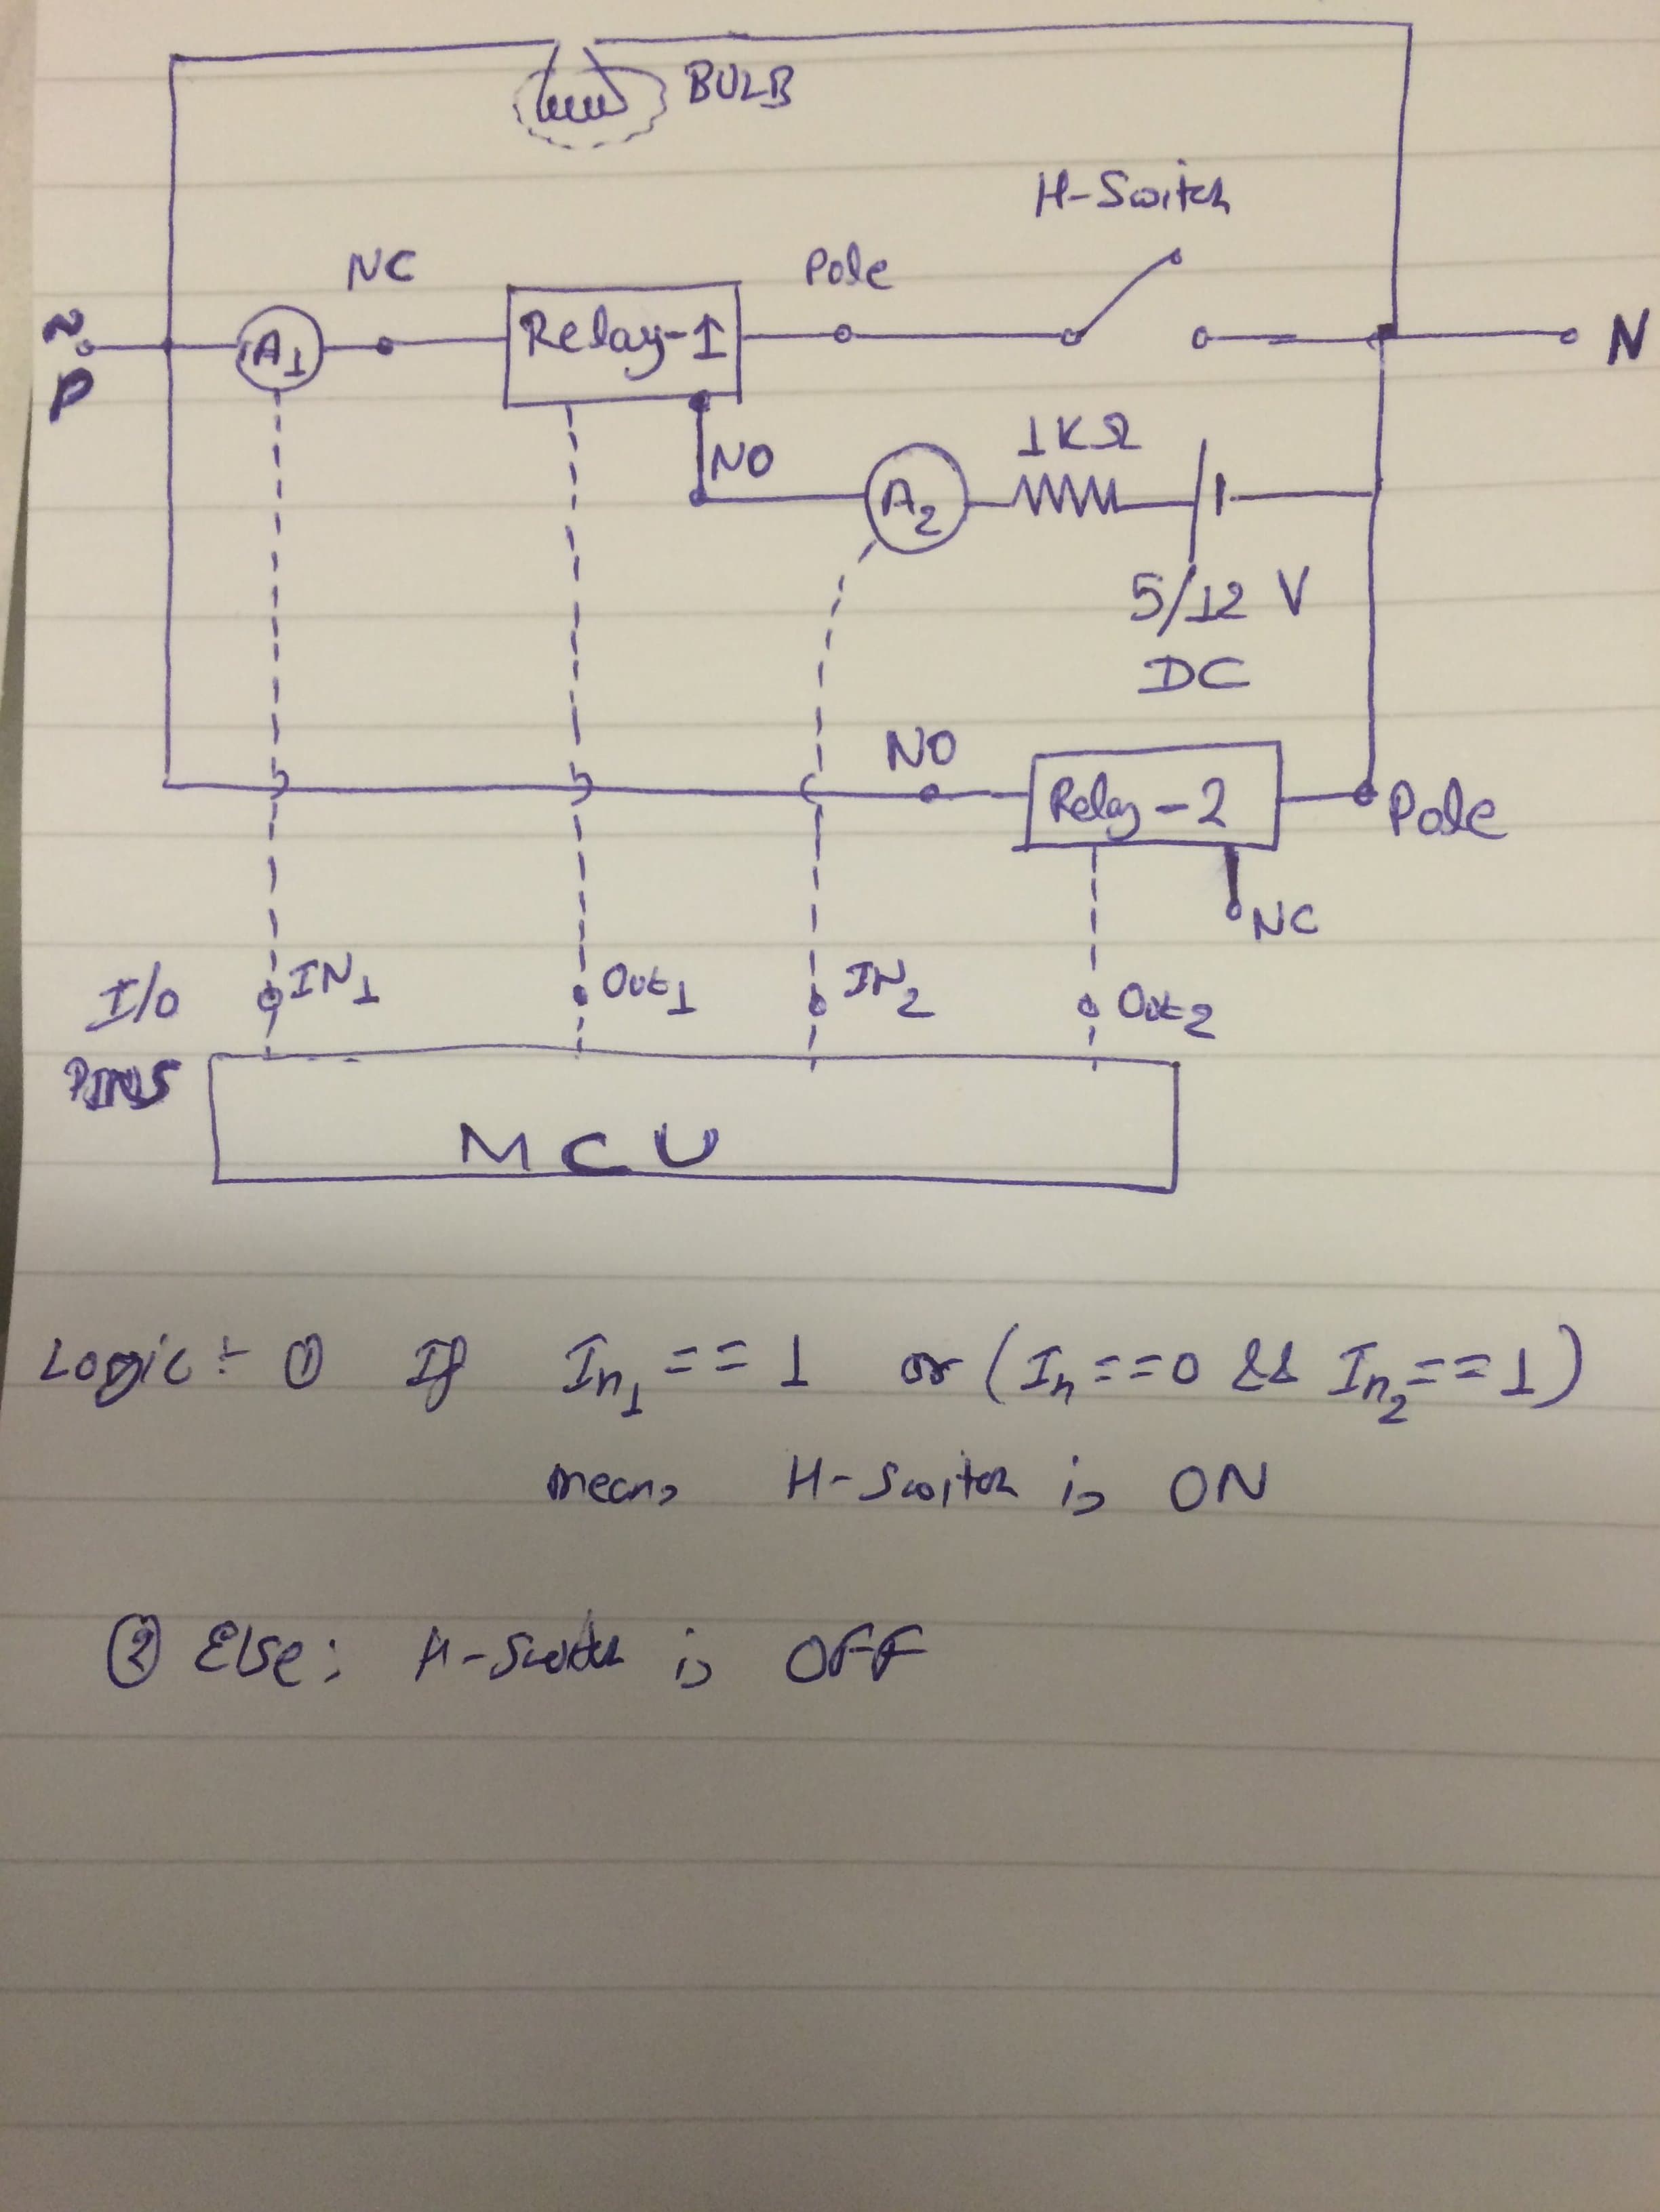 BULB
H-Switch
NC
Pole
~
P
A1
Relay-1
N
NO
A2
1KΩ
5/12 V
DC
NO
Relay-2
Pole
NC
I/O
PINS
IN1
Out1
IN2
Out2
MCU
Logic :- ① If In1 == 1 or (In==0 && In2==1)
means H-Switch is ON
② Else: H-Switch is OFF